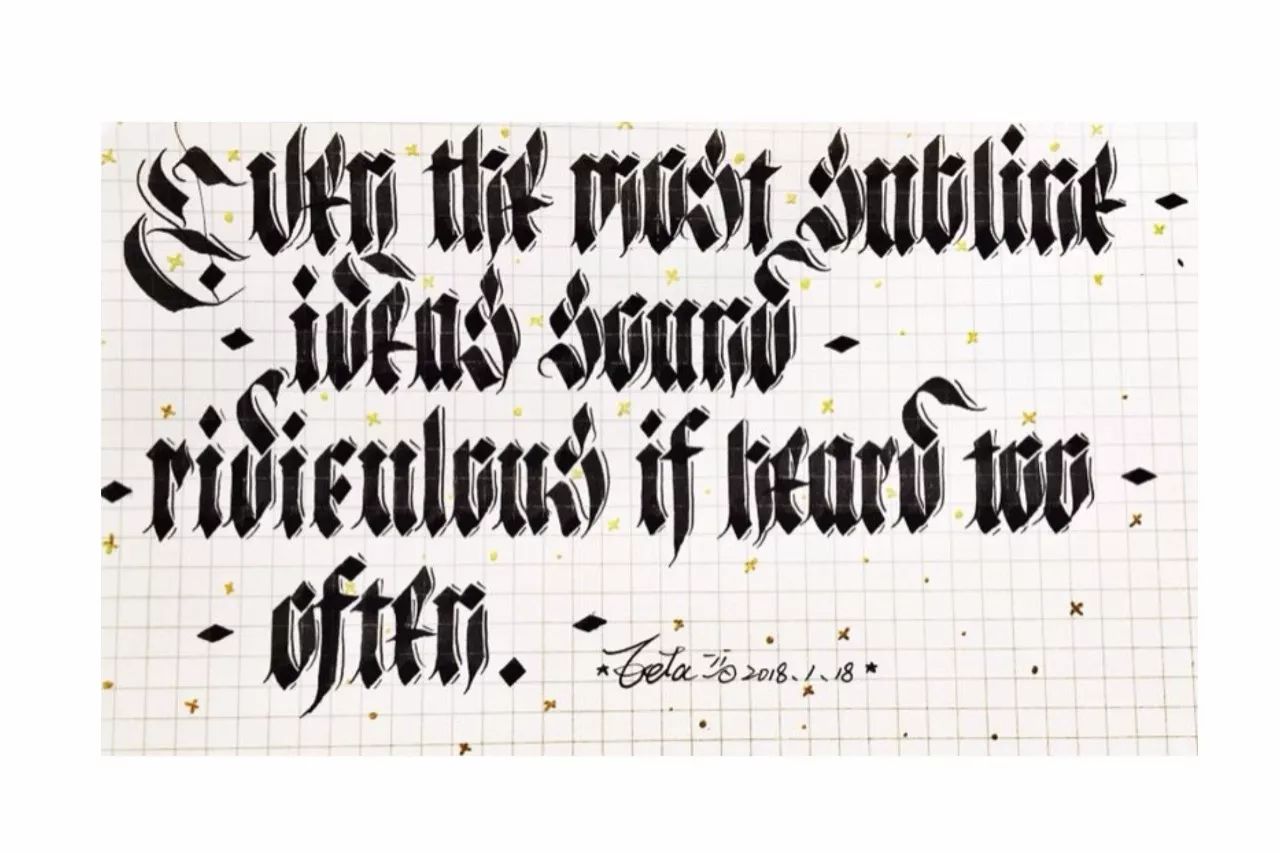 Even the most subline
ideas sound
ridiculous if heard too
often.
2018.1.18